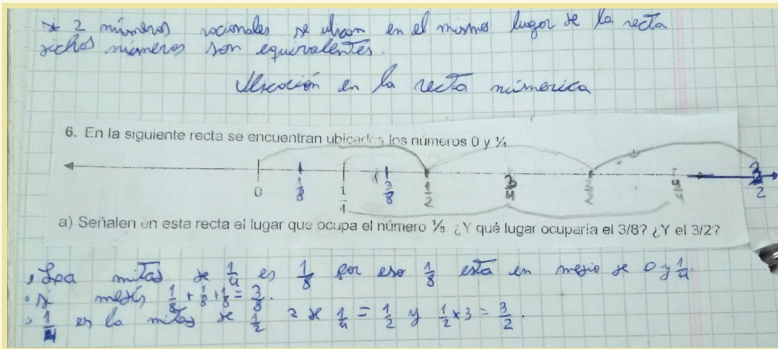 * 2 números racionales se ubican en el mismo lugar de la recta
dichos números son equivalentes.
Ubicación en la recta númerica
6. En la siguiente recta se encuentran ubicados los números 0 y ¼
0 1/8 1/4 3/8 1/2 3/4 2/2 3/2
a) Señalen en esta recta el lugar que ocupa el número ⅛ ¿Y qué lugar ocuparía el 3/8? ¿Y el 3/2?
• Loa mitad de 1/4 es 1/8 por eso 1/8 esta en medio de 0 y 1/4.
• si 1/8 + 1/8 + 1/8 = 3/8.
• 1/4 es la mitad de 1/2 2 de 1/4 = 1/2 y 1/2 x 3 = 3/2.